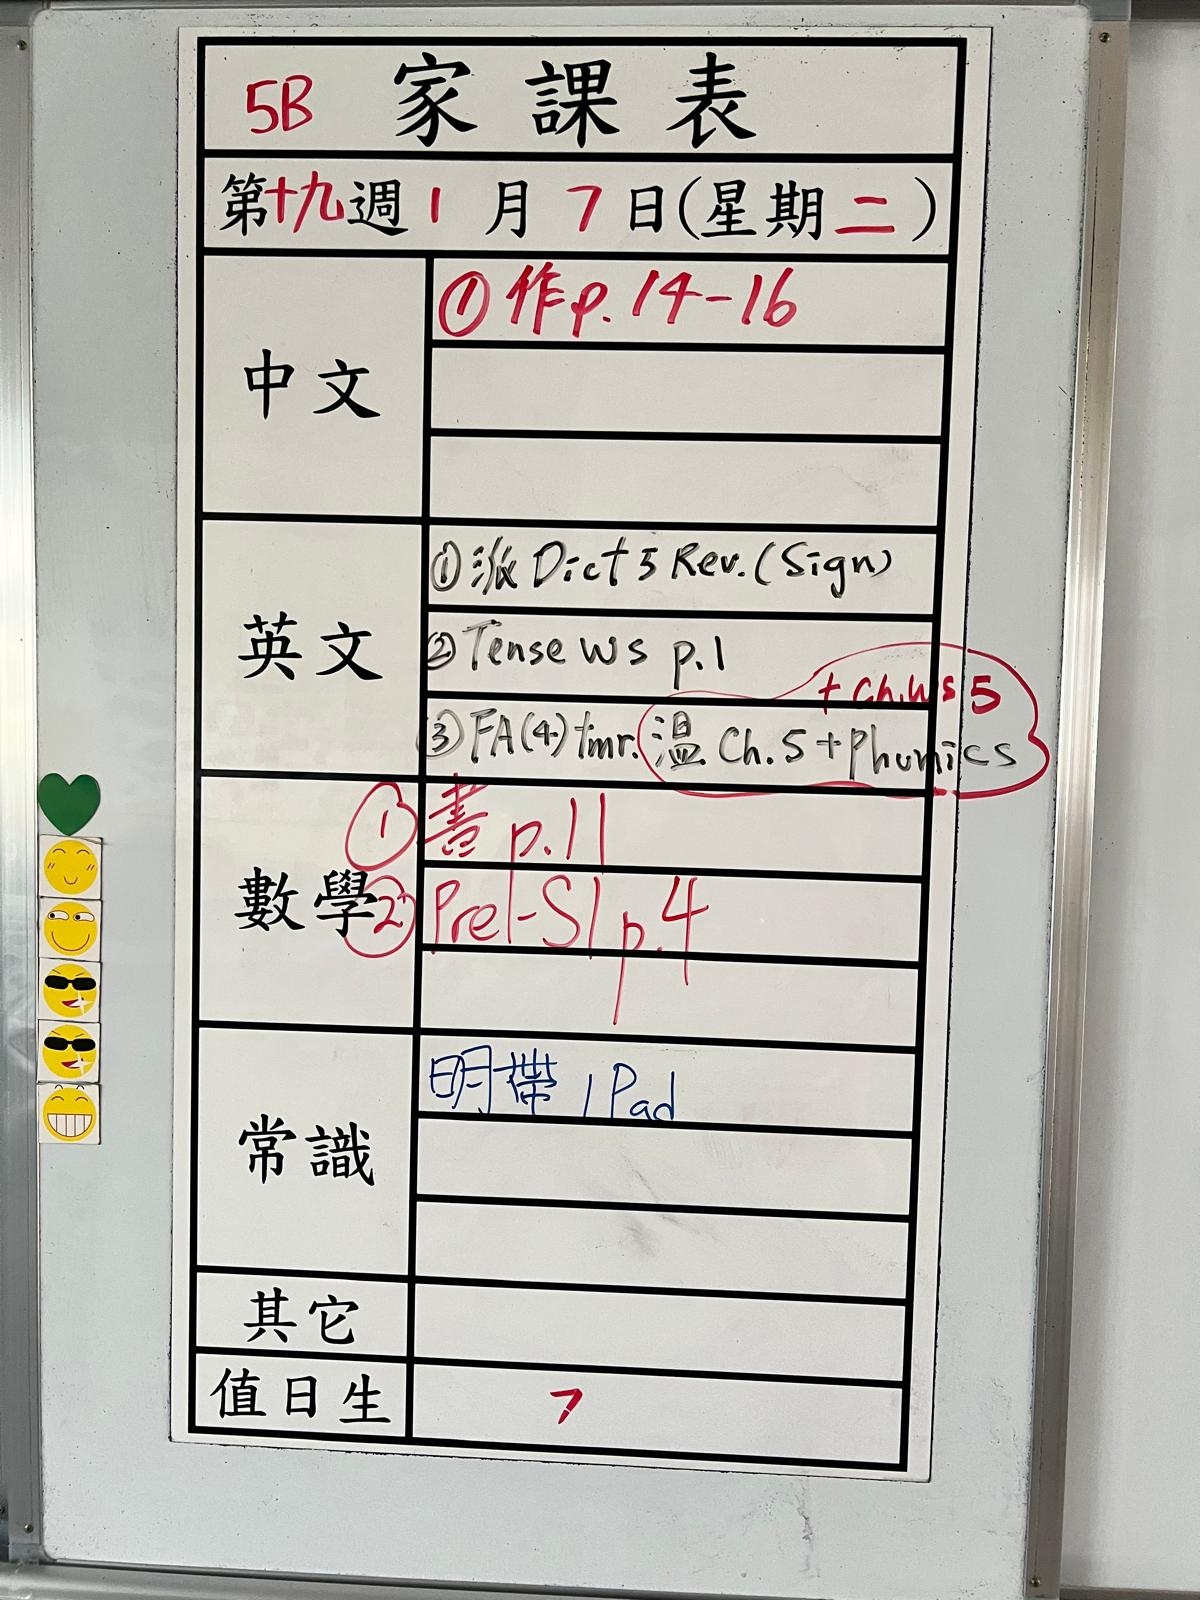 5B 家課表
第十九週 1月7日(星期二)
中文
①作p.14-16
英文
①派Dict 5 Rev.(Sign)
②Tense WS p.1
+ ch.ws 5
③FA(4)tmr.溫Ch.5+Phonics
數學
①書p.11
②Pre1-S1 p.4
常識
明帶iPad
其它
值日生
7